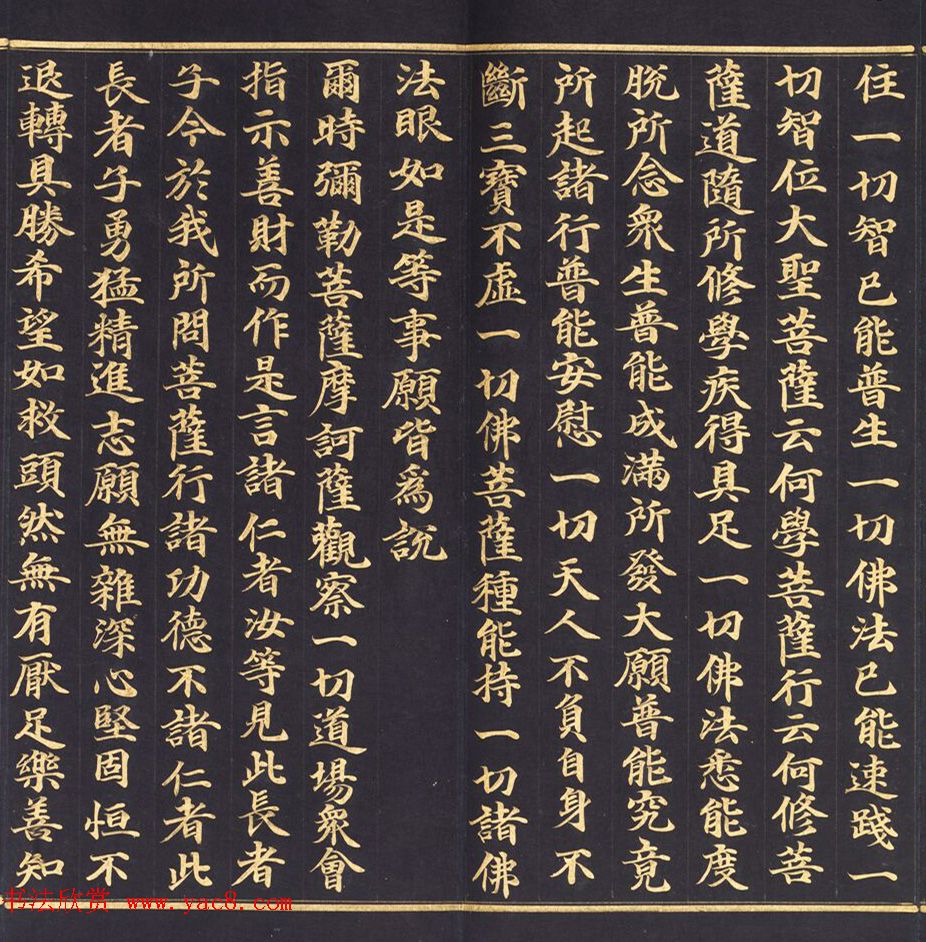 住一切智已能普生一切佛法已能速踐一
切智位大聖菩薩云何學菩薩行云何修菩
薩道隨所修學疾得具足一切佛法悉能度
脫所念眾生普能成滿所發大願普能究竟
所起諸行普能安慰一切天人不負自身不
斷三寶不虛一切佛菩薩種能持一切諸佛
法眼如是等事願皆為說
爾時彌勒菩薩摩訶薩觀察一切道場眾會
指示善財而作是言諸仁者汝等見此長者
子今於我所問菩薩行諸功德不諸仁者此
長者子勇猛精進志願無雜深心堅固恒不
退轉具勝希望如救頭然無有厭足樂善知
书法欣赏 www.yac8.com